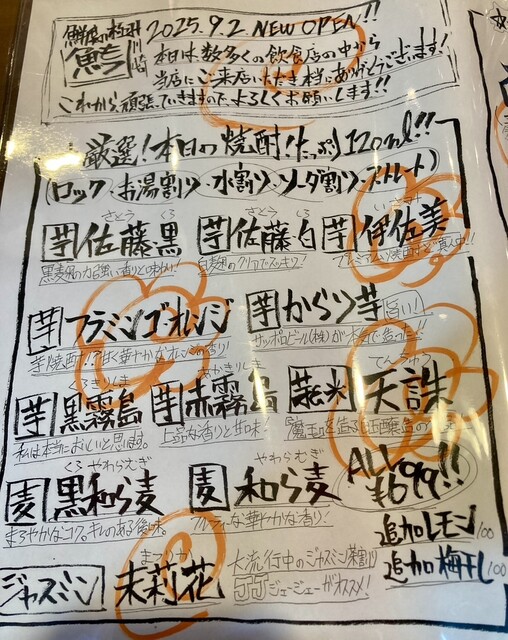 鮮魚と極丼 川崎
2025.9.2. NEW OPEN!!
本日は数多くの飲食店の中から
当店にご来店いただき本当にありがとうございます!
これから頑張っていきますので、よろしくお願いします!!
厳選!本日の焼酎!たっぷり120ml!!
(ロック・お湯割り・水割り・ソーダ割り・ストレート)
さとう くろ
芋 佐藤黒
さとう しろ
芋 佐藤白
いさみ
芋 伊佐美
黒麹の力強い香りと味わい!
白麹のクリアでスッキリ!
芋 フラミンゴオレンジ
芋 からり芋 旨い!
芋焼酎!?
華やかな
香り!
サッポロビール(株)が本気で造った!!
くろきりしま
芋 黒霧島
あかきりしま
芋 赤霧島
てんちゅう
芋米 天誅
私は本当においしいと思ます。
上品な香りと甘味!
魔王を造る白玉醸造の
くろ やわらむぎ
麦 黒和ら麦
やわらむぎ
麦 和ら麦
ALL
¥699!!
まろやかなコク。キレのある後味。
フルーティな華やかな香り!
追加レモン 100
追加梅干し 100
まつりか
ジャスミン 茉莉花
大流行中のジャスミン茶割り
JJ ジェージェーがオススメ!